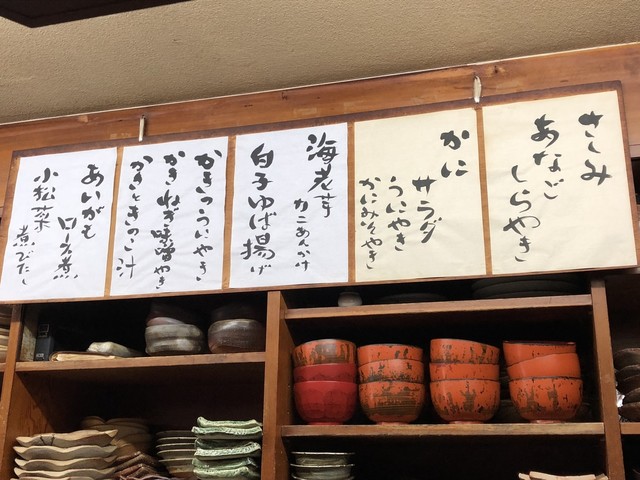 さしみ
あなご
しらやき
かに
サラダ
ういやき
かにみそやき
海老芋
かにあんかけ
白子ゆば揚げ
かきのういやき
かきねぎ味噌やき
かきときのこ汁
あいがも
ロース煮
小松菜
煮びたし